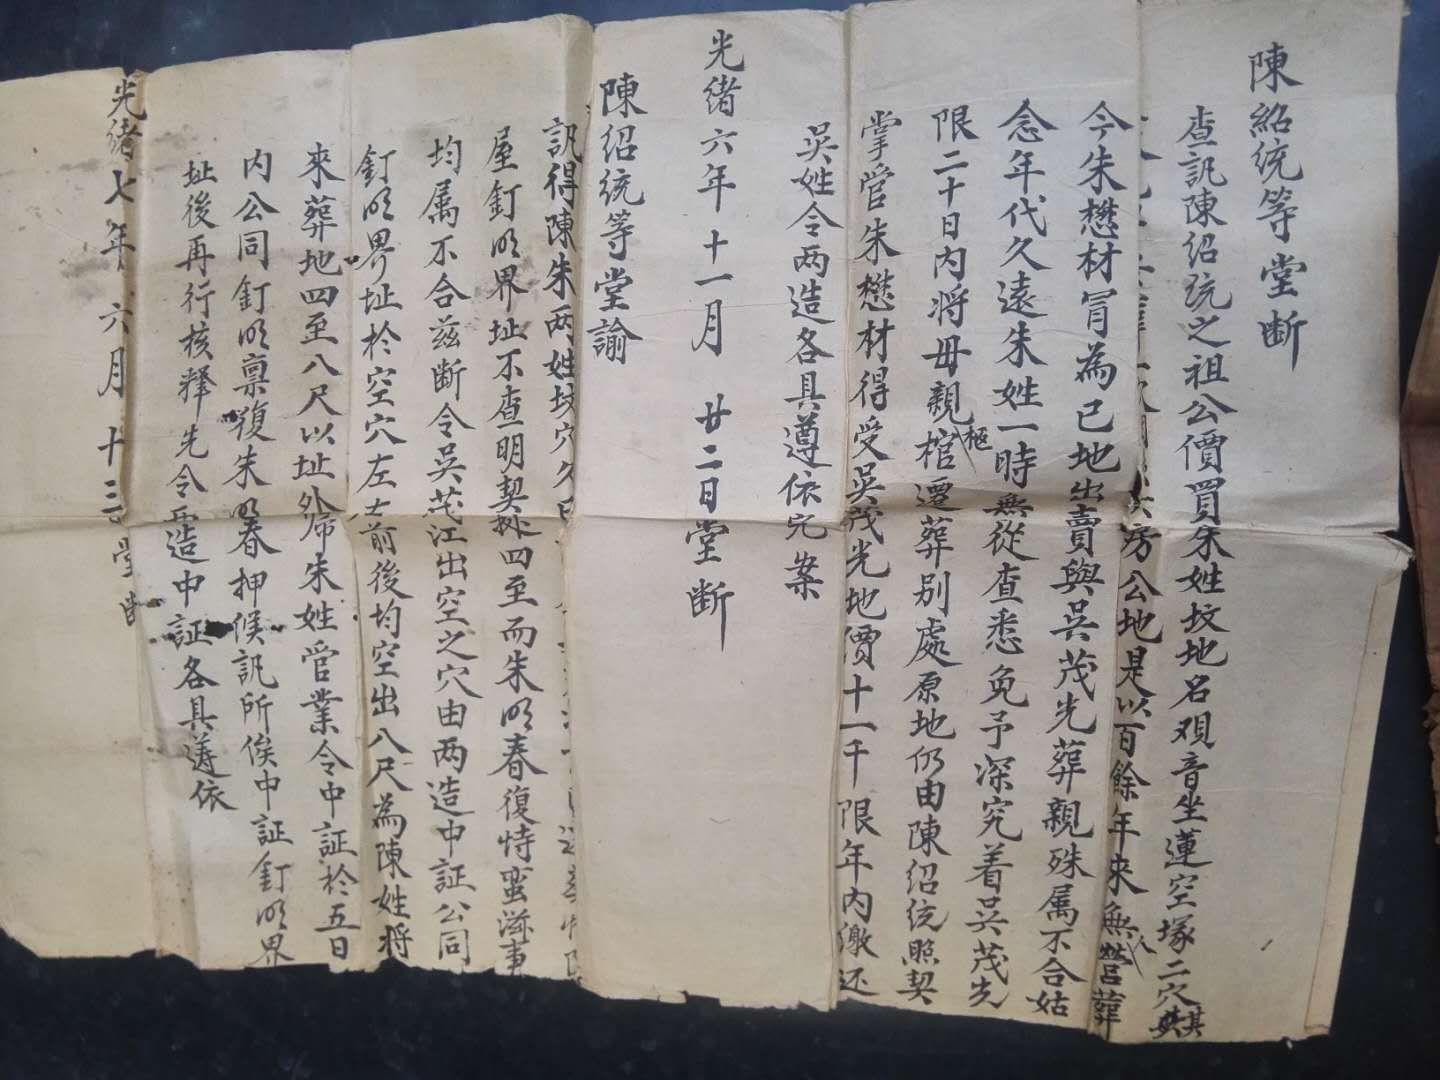 陳紹統等堂断
查訊陳紹統之祖公價買朱姓坟地名观音坐蓮空塚二穴其
房公地是以百餘年来無人營葬
今朱懋材冒為已地出賣與吴茂光葬親殊属不合姑
念年代久遠朱姓一時無從查悉免予深究着吴茂光
限二十日内将母親棺柩遷葬别處原地仍由陳紹统照契
掌管朱懋材得受吴茂光地價十一千限年内缴还
吴姓令两造各具遵依完案
光緒六年十一月廿二日堂断
陳紹統等堂諭
訊得陳朱两姓坟穴久
屋釘明界址不查明契据四至而朱明春復恃蛮滋事
均属不合兹断令吴茂江出空之穴由两造中証公同
釘明界址於空穴左右前後均空出八尺為陳姓将
来葬地四至八尺以址外歸朱姓管業令中証於五日
内公同釘明禀復朱明春押候訊所俟中証釘明界
址後再行核釋先令两造中証各具遵依
光緒七年六月十三堂断